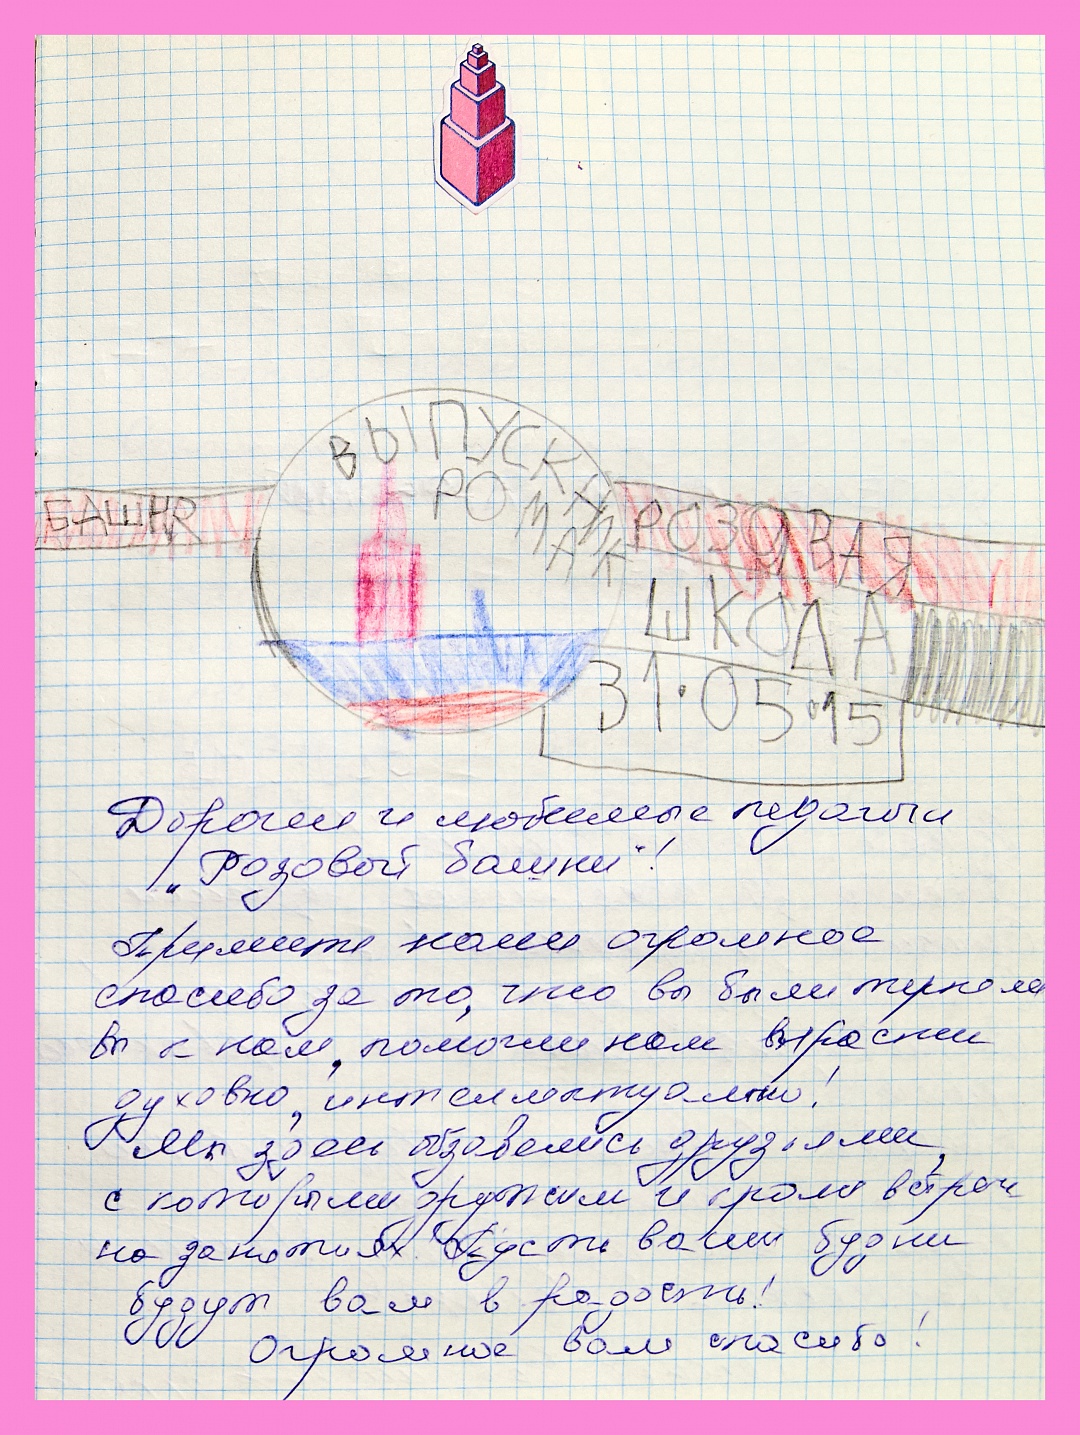 ВЫПУСКНИК
РОМАК
БАШНЯ
РОЗОВАЯ
ШКОЛА
31.05.15
Дорогие и любимые педагоги
„Розовой башни"!
Примите наше огромное
спасибо за то, что вы были терпели
вы к нам, помогли нам вырасти
духовно, интеллектуально!
Мы здесь обзавелись друзьями,
с которыми дружим и кроме встреч
на занятиях. Пусть ваши будни
будут вам в радость!
Огромное вам спасибо!